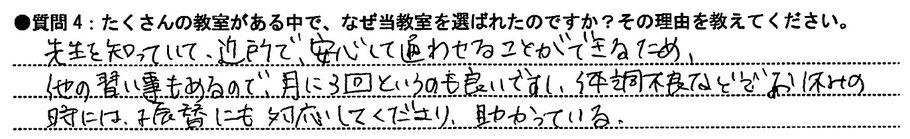 ●質問４：たくさんの教室がある中で、なぜ当教室を選ばれたのですか？その理由を教えてください。
先生を知っていて、近所で、安心して通わせることができるため、
他の習い事もあるので、月に3回というのも良いですし、体調不良などでお休みの
時には、振替にも対応してくださり、助かっている。